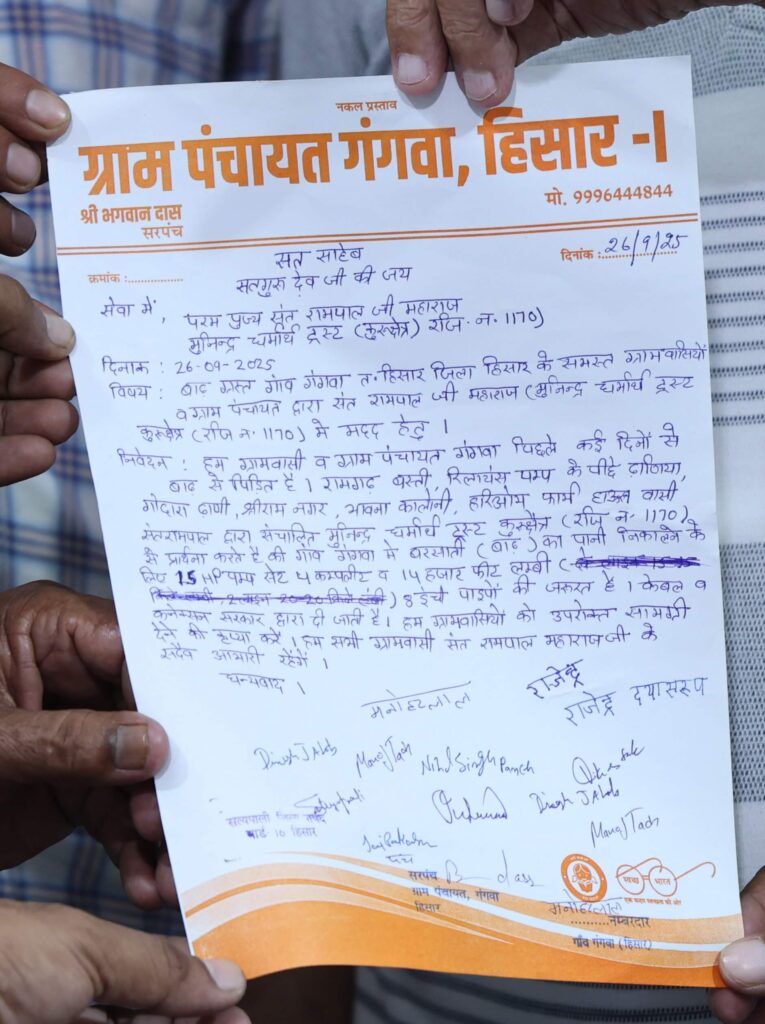 नकल प्रस्ताव
ग्राम पंचायत गंगवा, हिसार -I
श्री भगवान दास
सरपंच
मो. 9996444844
सत साहेब
दिनांक : 26/9/25
क्रमांक :
सतगुरु देव जी की जय
सेवा में,
परम पुज्य संत रामपाल जी महाराज
मुनिन्द्र धर्मार्थ ट्रस्ट (कुरूक्षेत्र) रजि. न. 1170)
दिनांक : 26-09-2025
विषय : बाढ ग्रस्त गांव गंगवा त. हिसार जिला हिसार के समस्त ग्रामवासियों
व ग्राम पंचायत द्वारा संत रामपाल जी महाराज (मुनिन्द्र धर्मार्थ ट्रस्ट
कुरूक्षेत्र (रजि न. 1170) मे मदद हेतु ।
निवेदन : हम ग्रामवासी व ग्राम पंचायत गंगवा पिछले कई दिनों से
बाढ से पिडित है । रामगढ़ बस्ती, रिलायंस पम्प के पीछे ढाणिया,
गोदारा ढाणी, श्रीराम नगर, भावना कालोनी, हरिओम फार्म हाऊस वासी
संत रामपाल द्वारा संचालित मुनिन्द्र धर्मार्थ ट्रस्ट कुरूक्षेत्र (रजि न. 1170)
से प्रार्थना करते है की गांव गंगवा मे बरसाती (बाढ) का पानी निकालने के
लिए 15 HP पम्प सेट 4 कम्पलीट व 14 हजार फीट लम्बी
8 इंची पाइपों की जरूरत है । केबल व
कनेक्सन सरकार द्वारा दी जाती है । हम ग्रामवासियों को उपरोक्त सामग्री
देने की कृपा करें । हम सभी ग्रामवासी संत रामपाल महाराज जी के
सदैव आभारी रहेंगे ।
धन्यवाद ।
मनोहरलाल
राजेन्द्र
राजेन्द्र दयासरूप
Manoj Tada
सत्यपाल
वार्ड 10 हिसार
Manoj Tada
पंच
सरपंच
ग्राम पंचायत, गंगवा
हिसार
स्वच्छ भारत
एक कदम स्वच्छता की ओर
मनोहरलाल
नम्बरदार
गाँव गंगवा (हिसार)